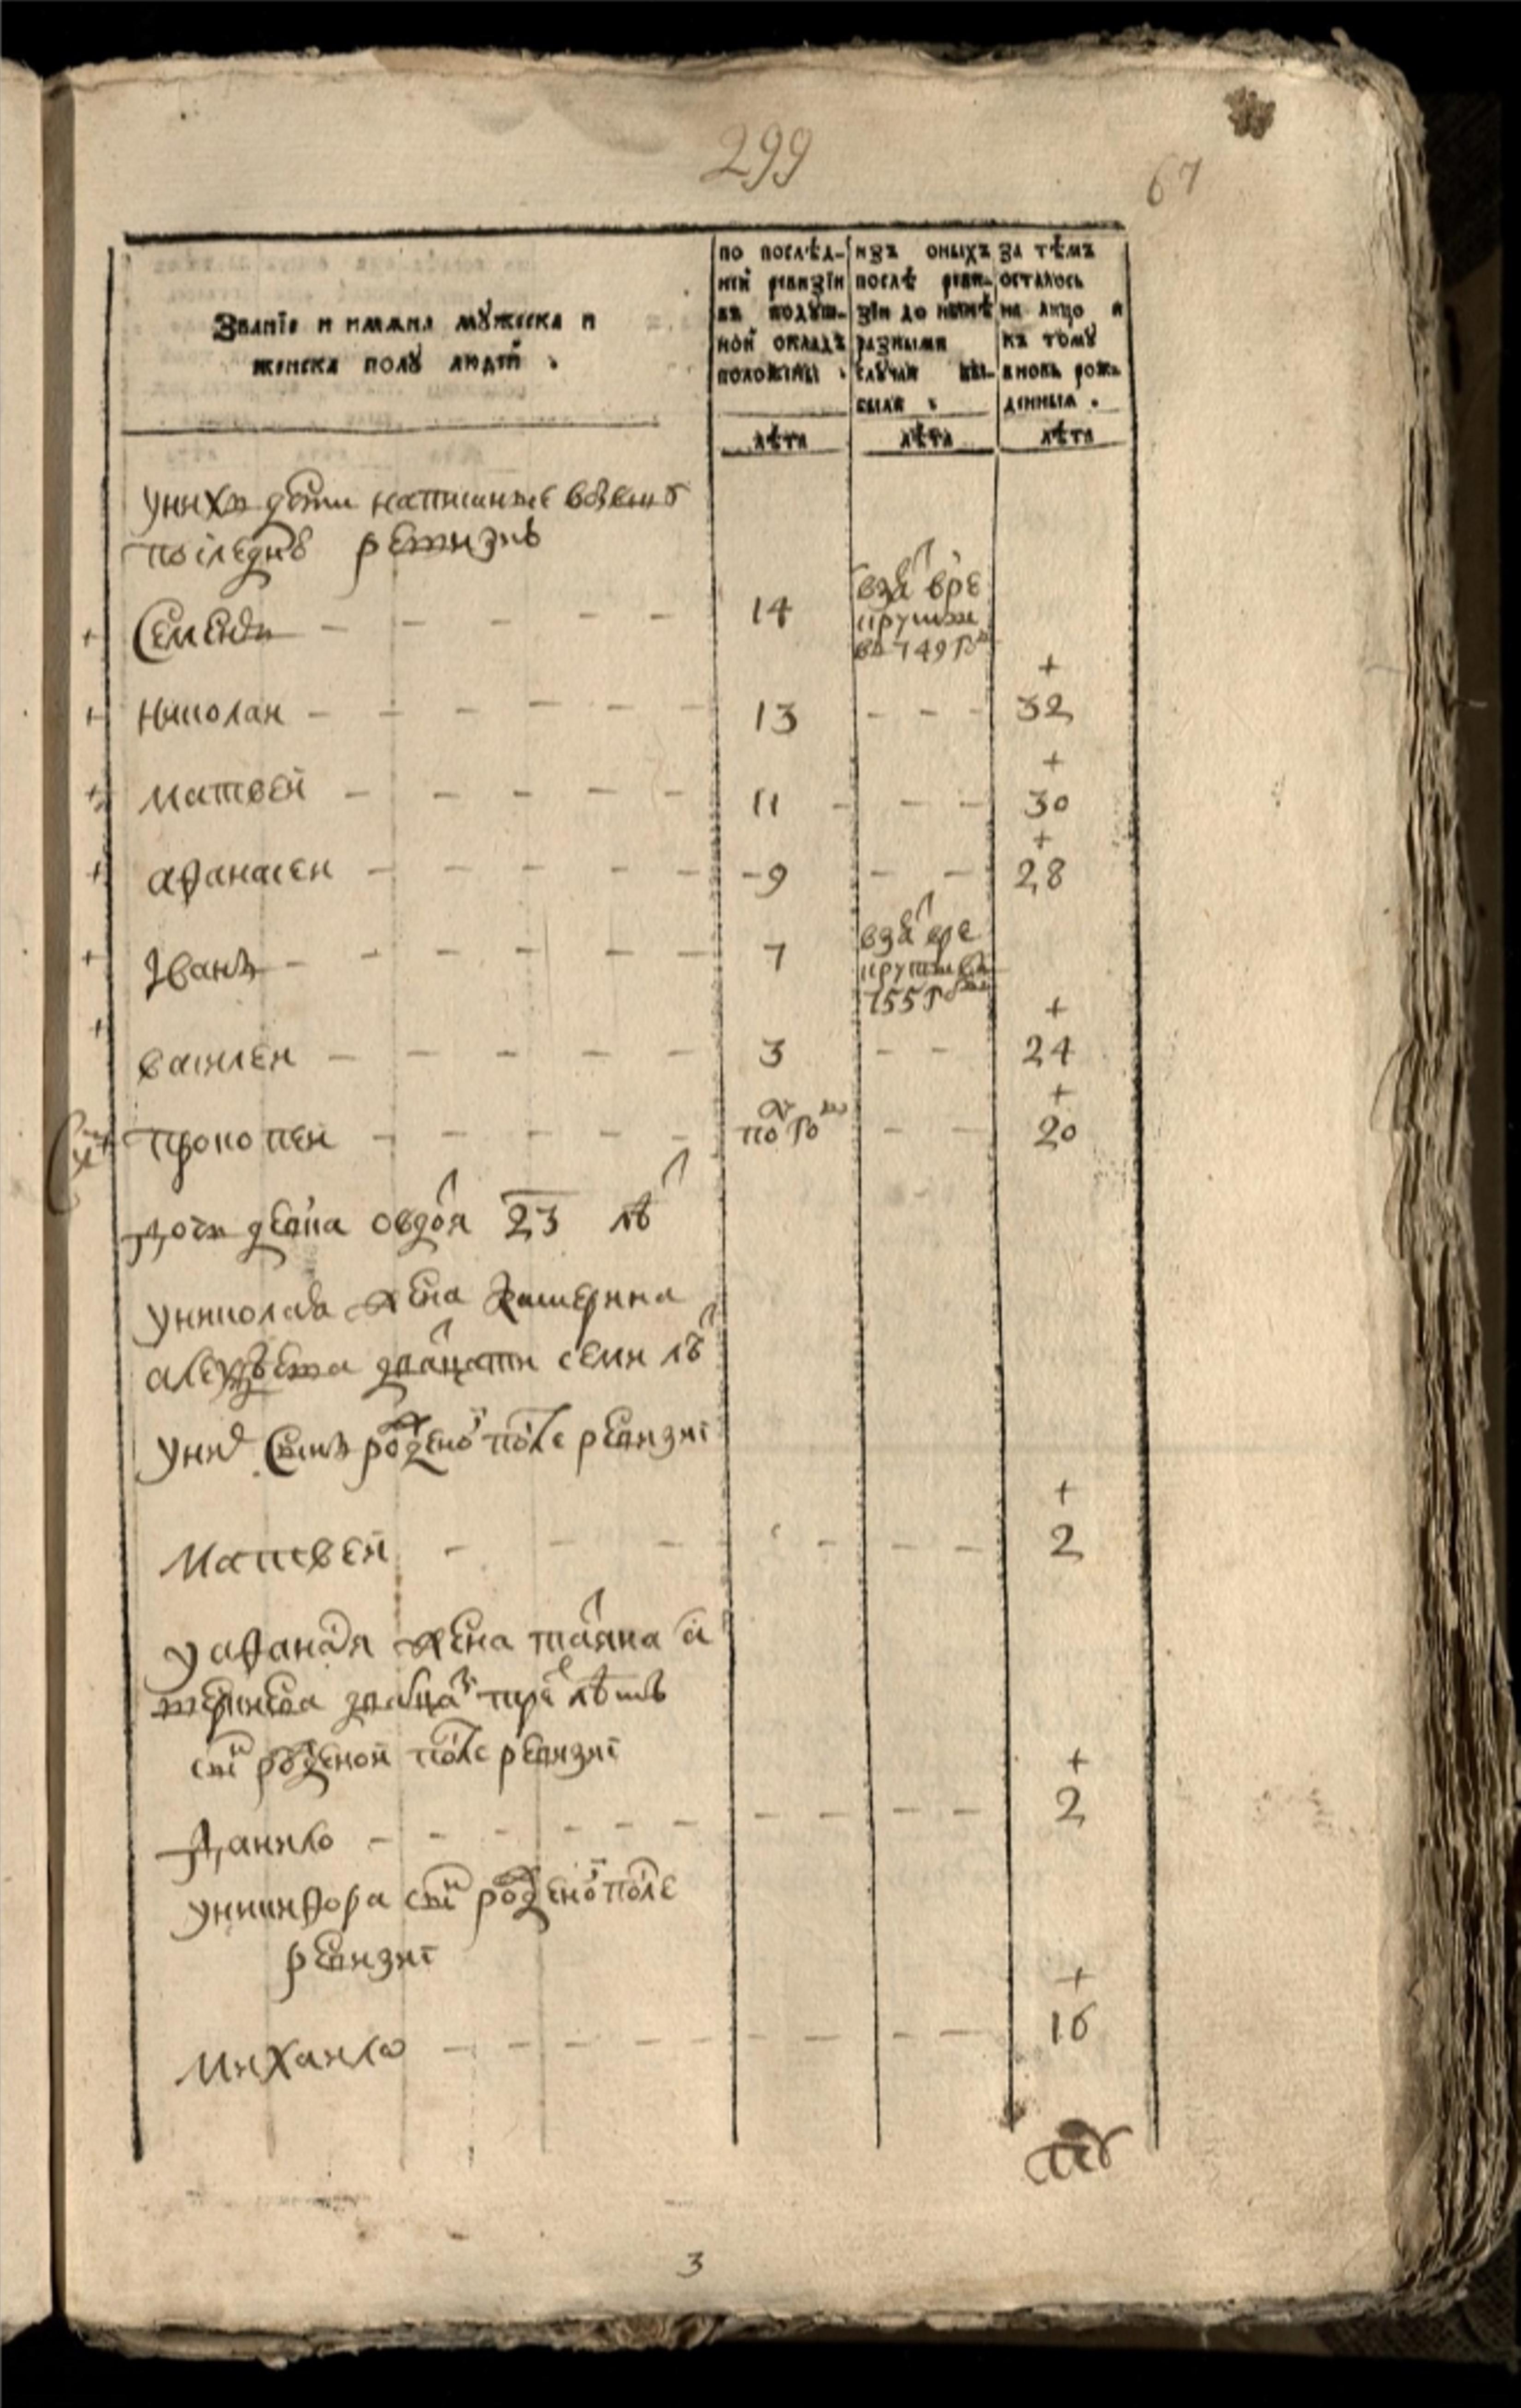 299
67
Званїе и имѧна мꙋжеска и
женска полꙋ людей .
по послѣд-
ней ревизїи
въ подꙋш-
ной окладъ
положены .
изъ оныхъ
послѣ реви-
зїи до нынѣ
разными
слꙋчаи вы-
были .
за тѣмъ
осталось
на лицо и
къ томꙋ
вновь рож-
денныѧ .
лѣта лѣта лѣта
у нихъ дети написанные
последне ревизиѣ
Семенъ 14
взѧ вре
круты
въ 749 го
+
николаи 13 32
+
матвеи 11 30
+
аѳанасеи 9 28
Iванъ 7
взѧ вре
круты въ
755 го
+
василеи 3 24
+
прокопеи по го 20
дочь девка овдоя 23 лѣ
у николаѧ жена катерина
двацати семи лѣ
у нихъ сынъ рожено после ревизиї
+
матвеи 2
у аѳанася жена татяна
двацат тре лѣтъ
сынъ роженои после ревизиї
+
данило 2
у никиѳора сынъ рожено после
ревизиї
+
михаило 16
3